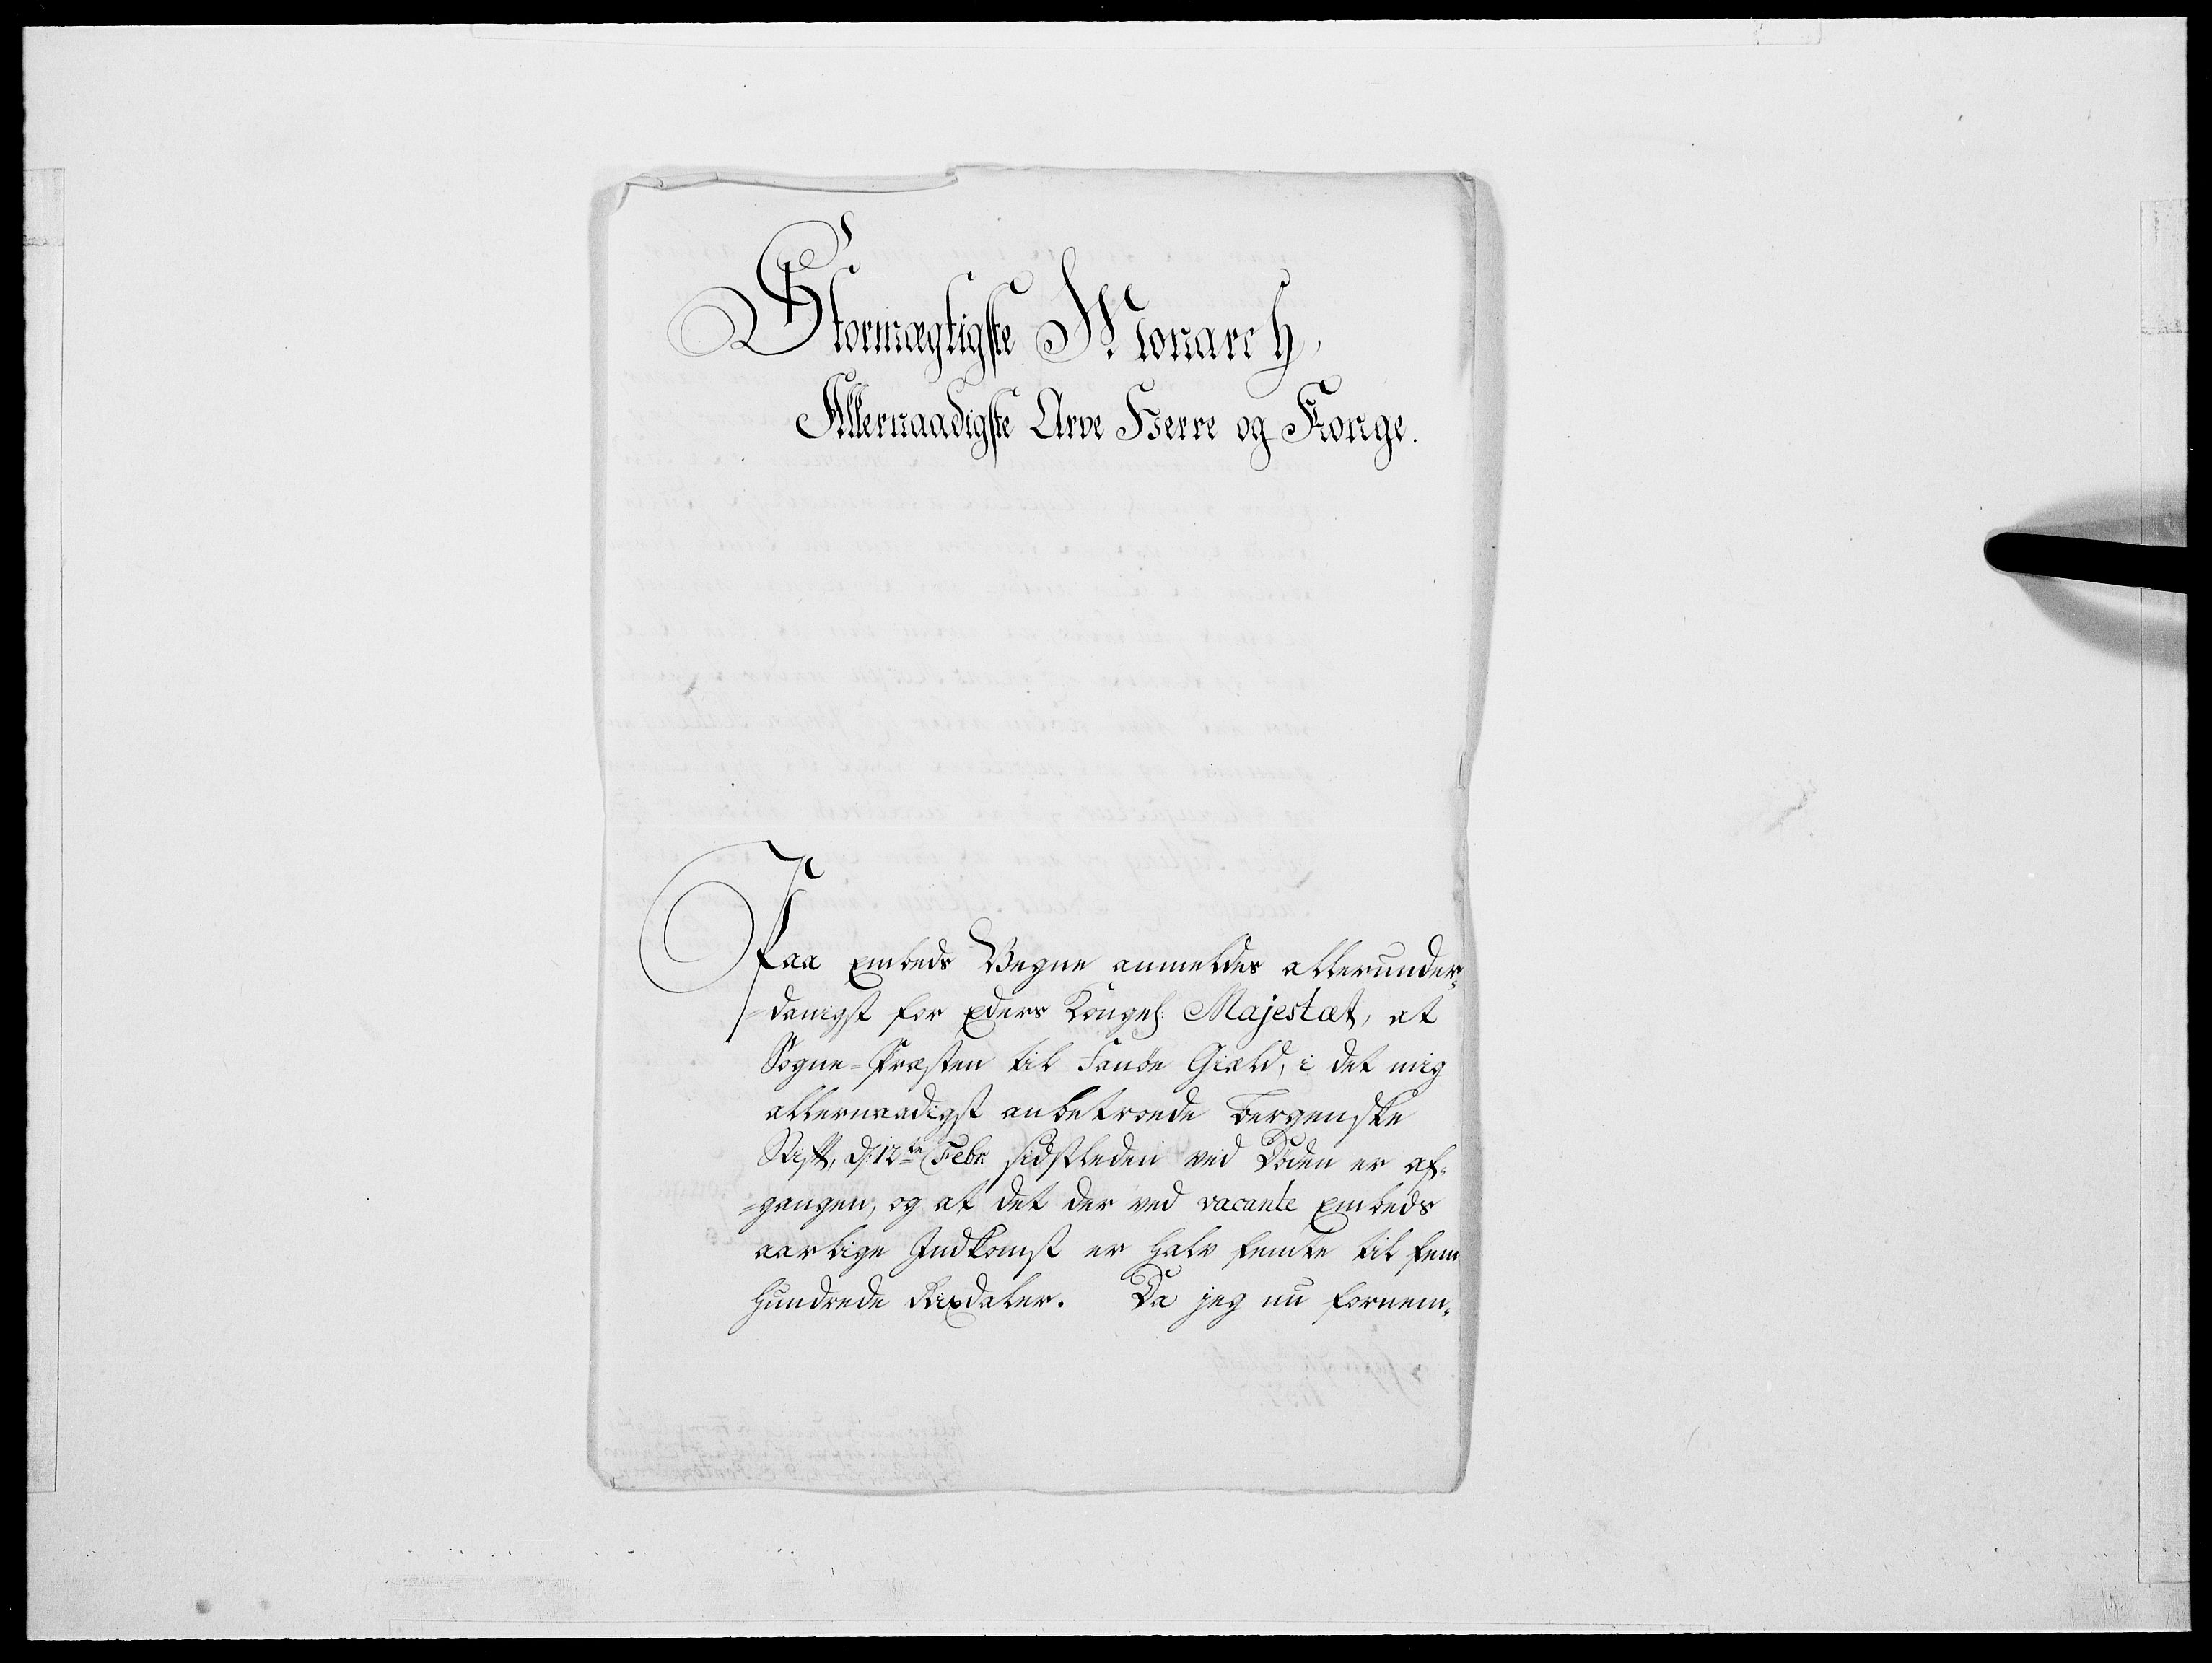 Stormægtigste Monarch,
Allernaadigste Arve Herre og Konge.
Paa Embeds Vegne anmeldes allerunder-
-danigst for Eders Kongel: Majestæt, at
Sogne-Præsten til Fanöe Gield, i det mig
allernaadigst anbetroede Bergenske
Stift, d: 12te Febr: sidstleden ved Döden er af-
-gangen, og at det der ved vacante Embeds
aarlige Indkomst er halv femte til fem
hundrede Rixdaler. Da jeg nu fornem-